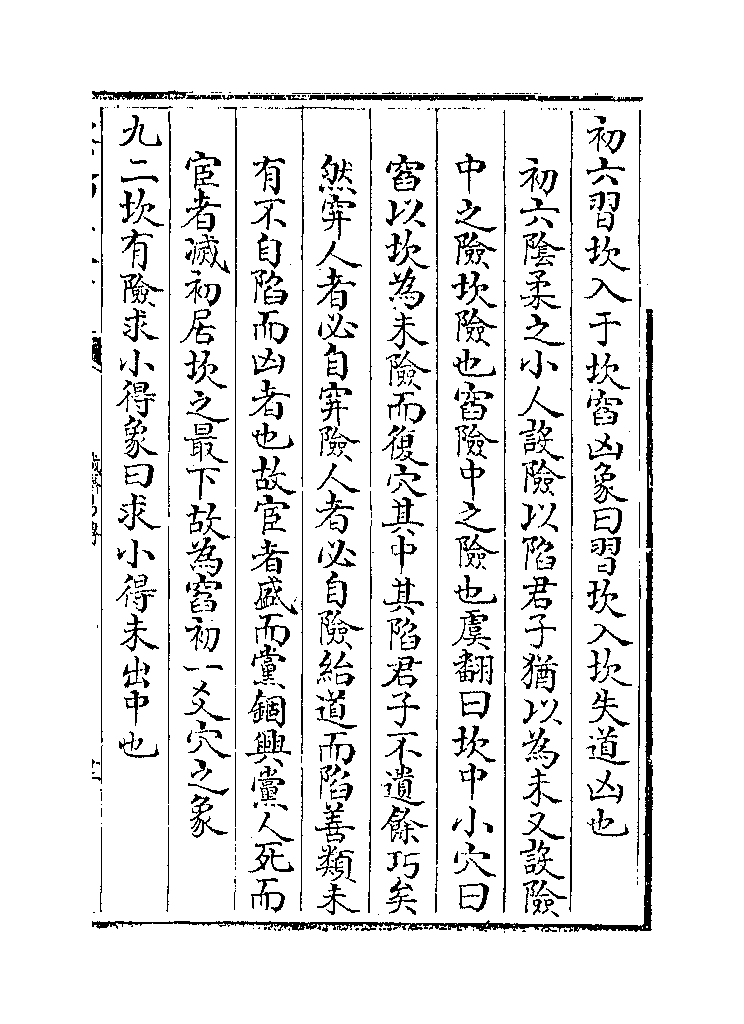 初六習坎入于坎窞凶象曰習坎入坎失道凶也
初六陰柔之小人設險以陷君子猶以為未又設險
中之險坎險也窞險中之險也虞翻曰坎中小穴曰
窞以坎為未險而復穴其中其陷君子不遺餘巧矣
然穽人者必自穽險人者必自險紿道而陷善類未
有不自陷而凶者也故宦者盛而黨錮興黨人死而
宦者滅初居坎之最下故為窞初一爻穴之象
九二坎有險求小得象曰求小得未出中也